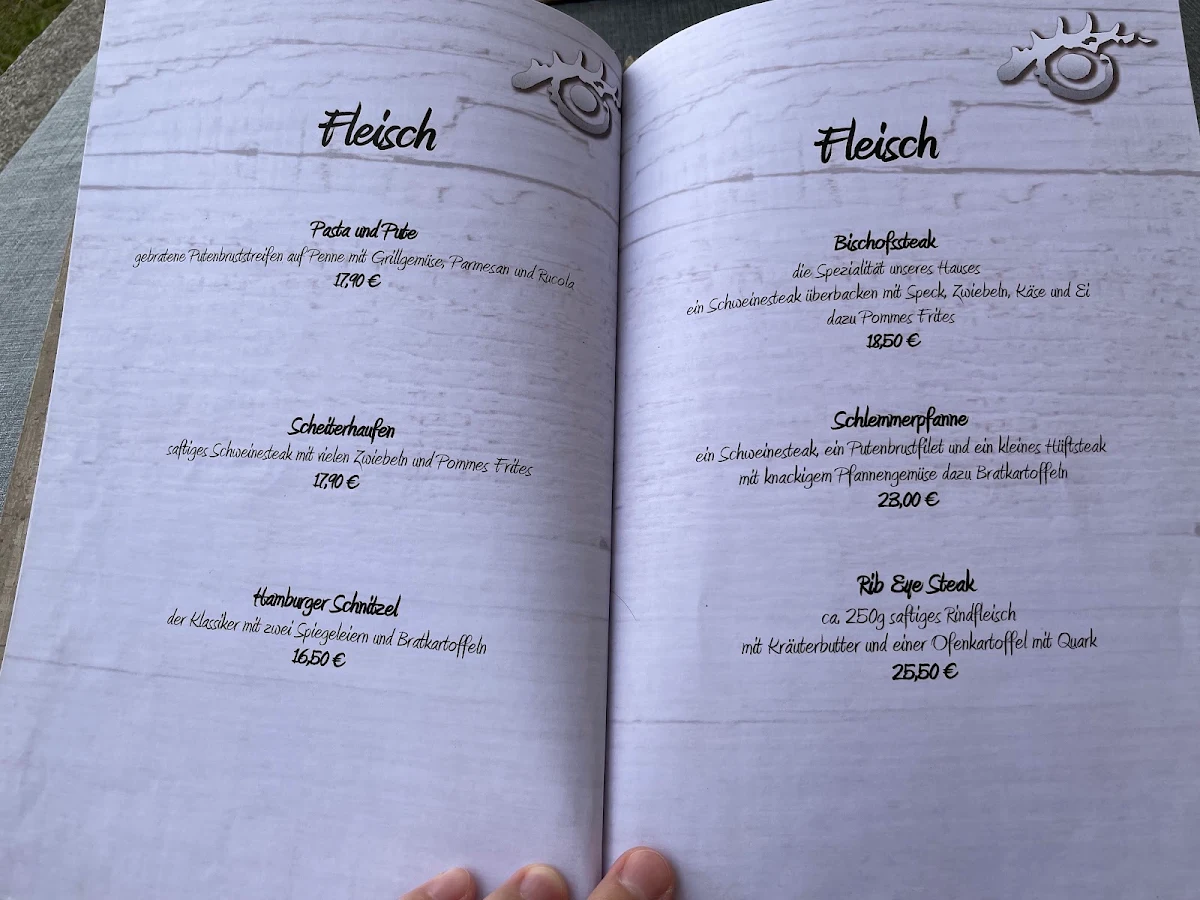 Fleisch
Pasta und Pute
gebratene Putenbruststreifen auf Penne mit Grillgemüse, Parmesan und Rucola
17,90 €
Scheiterhaufen
saftiges Schweinesteak mit vielen Zwiebeln und Pommes Frites
17,90 €
Hamburger Schnitzel
der Klassiker mit zwei Spiegeleiern und Bratkartoffeln
16,50 €
Fleisch
Bischofssteak
die Spezialität unseres Hauses
ein Schweinesteak überbacken mit Speck, Zwiebeln, Käse und Ei
dazu Pommes Frites
18,50 €
Schlemmerpfanne
ein Schweinesteak, ein Putenbrustfilet und ein kleines Hüftsteak
mit knackigem Pfannengemüse dazu Bratkartoffeln
23,00 €
Rib Eye Steak
ca. 250g saftiges Rindfleisch
mit Kräuterbutter und einer Ofenkartoffel mit Quark
25,50 €